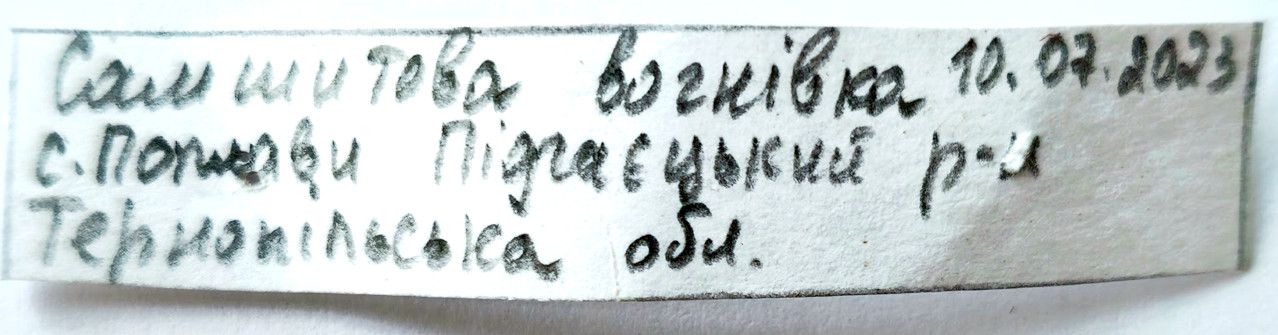 Самшитова вогнівка 10.07.2023
с. Поплави Підгаєцький р-н
Тернопільська обл.